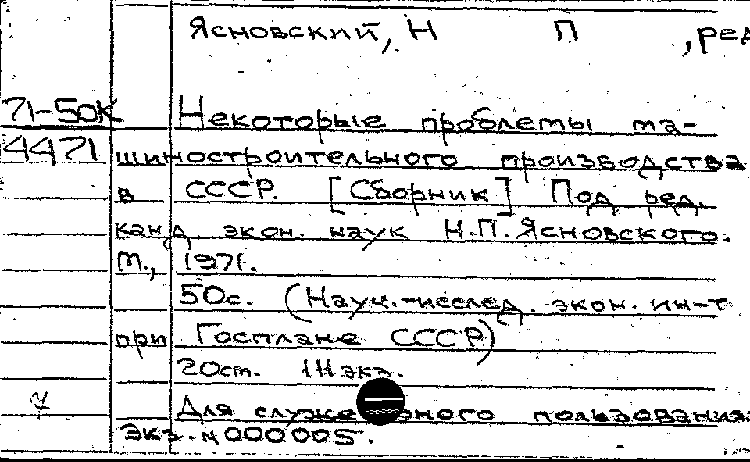 Ясновский, Н П , ред
71-50К Некоторые проблемы ма-
4471 шиностроительного производства
в СССР. [Сборник] Под ред.
канд. экон. наук Н.П.Ясновского.
М., 1971.
50с. (Науч.-исслед. экон. ин-т
при Госплане СССР)
20см. 1Н экз.
Для служебного пользования.
Экз. № 000005.